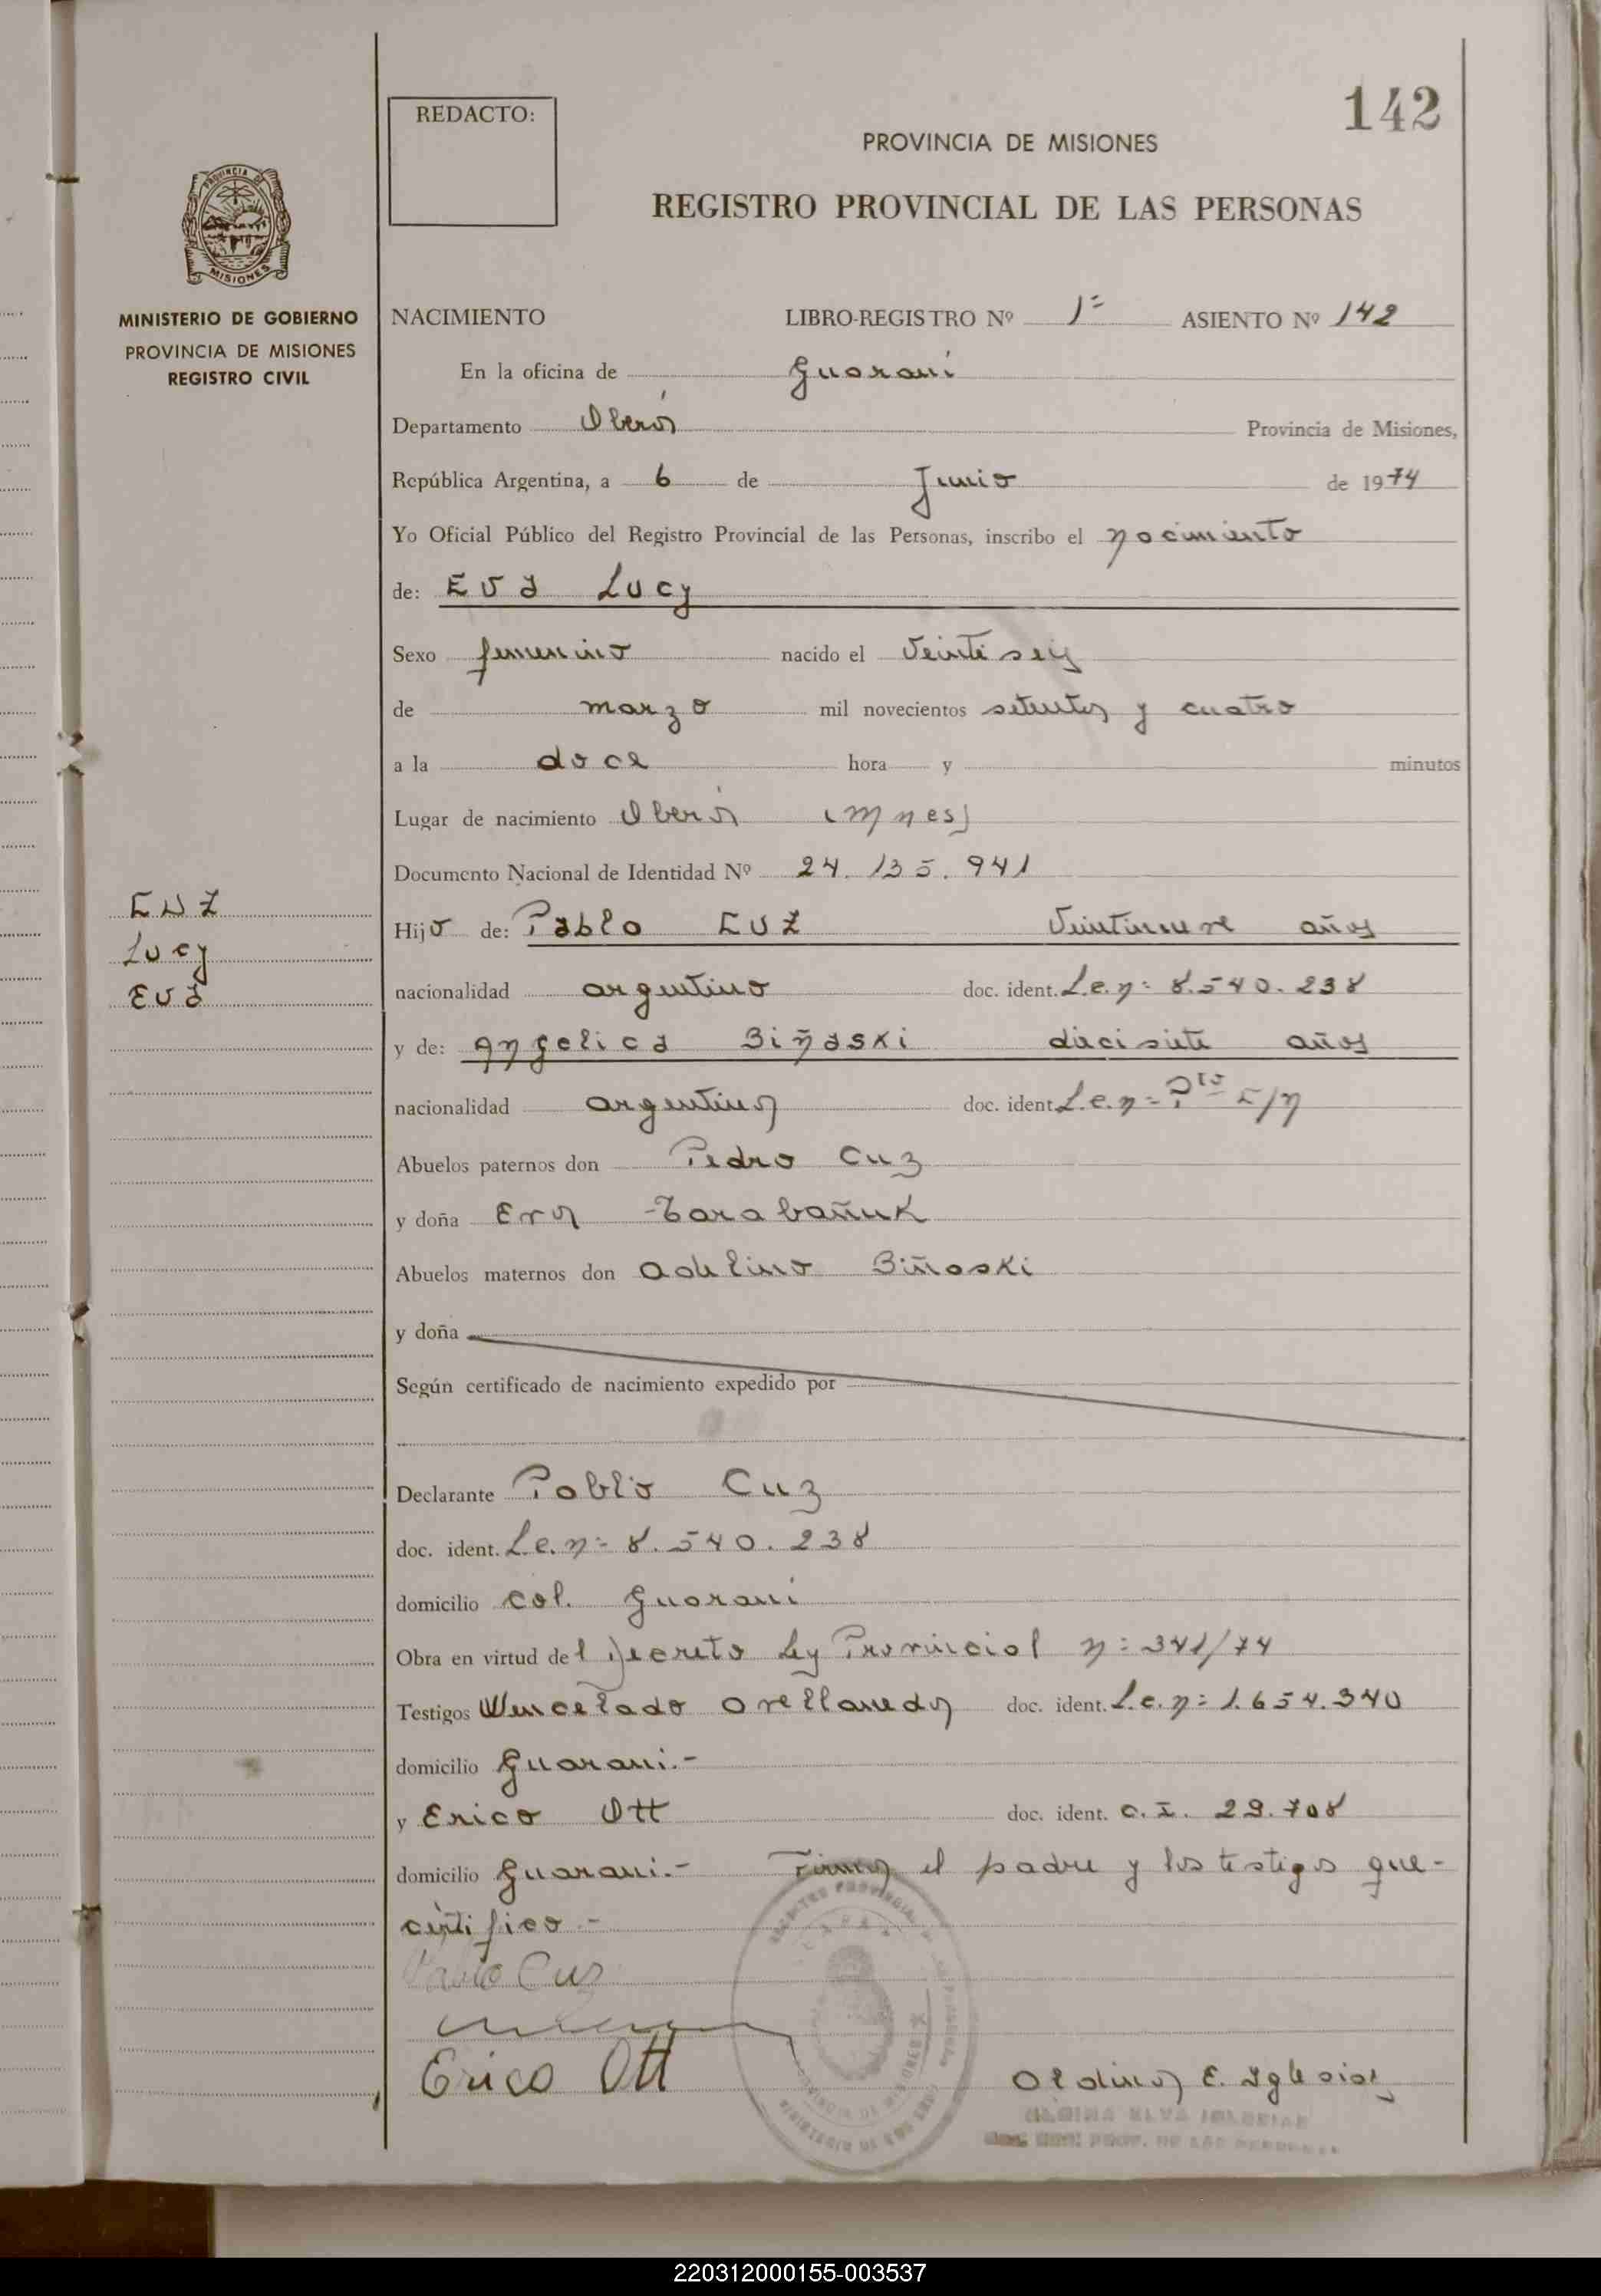 142
REDACTO:
PROVINCIA DE MISIONES
REGISTRO PROVINCIAL DE LAS PERSONAS
PROVINCIA DE
MISIONES
MINISTERIO DE GOBIERNO
PROVINCIA DE MISIONES
REGISTRO CIVIL
NACIMIENTO LIBRO-REGISTRO Nº 1º ASIENTO Nº 142
En la oficina de Guaraní
Departamento Oberá Provincia de Misiones,
República Argentina, a 6 de Junio de 1974
Yo Oficial Público del Registro Provincial de las Personas, inscribo el nacimiento
de: Eva Lucy
Sexo femenino nacido el veintiseis
de marzo mil novecientos setenta y cuatro
a la doce hora y minutos
Lugar de nacimiento Oberá (Mnes)
Documento Nacional de Identidad Nº 24.135.941
CUZ
Lucy
Eva
Hijo de: Pablo CUZ Veintinueve años
nacionalidad argentino doc. ident. L.e.n= 8.540.238
y de: Angelica Biñaski diecisiete años
nacionalidad argentina doc. ident. L.e.n=
Abuelos paternos don Pedro Cuz
y doña Eva Tarabañuk
Abuelos maternos don Adelino Biñaski
y doña
Según certificado de nacimiento expedido por
Declarante Pablo Cuz
doc. ident. L.e.n= 8.540.238
domicilio col. Guaraní
Obra en virtud del Decreto Ley Provincial n= 341/74
Testigos Wencelado Orellaneda doc. ident. L.e.n= 1.654.340
domicilio Guarani.-
y Erico Ott doc. ident. C.I. 29.708
domicilio Guarani.- Firma el padre y los testigos que-
certifico.-
Pablo Cuz
Erico Ott
Aldina E. Iglesias
220312000155-003537